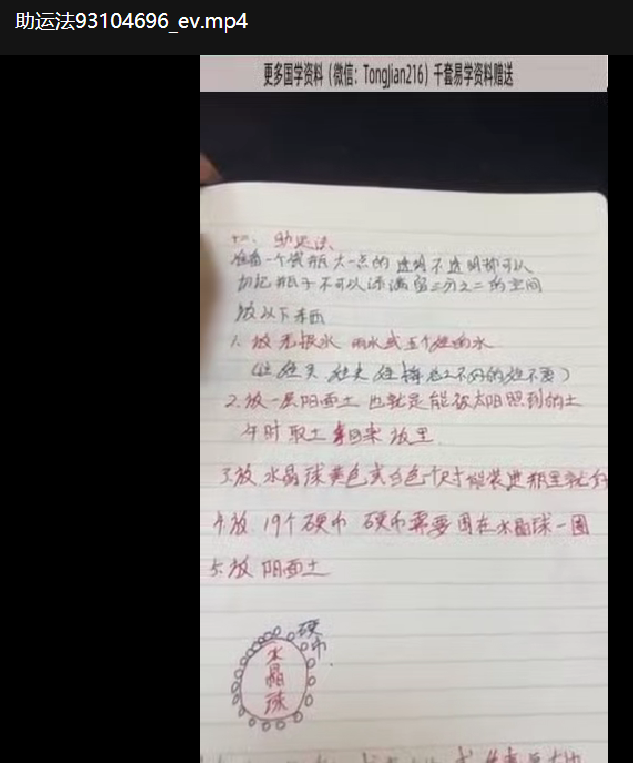 助运法93104696_ev.mp4
更多国学资料（微信：TongJian216）千套易学资料赠送
十一、助运法
准备一个货瓶大一点的透明不透明都可以
切记瓶子不可以添满留三分之二的空间
放以下东西
1、放无根水 雨水或五个姓的水
2、放一层阳面土 也就是能被太阳照到的土
午时取土 拿回来放里
3、放水晶球黄色或白色 尺寸能装进瓶里就行
4、放 19个硬币 硬币需要围在水晶球一圈
5、放 阳面土
硬币
水晶球